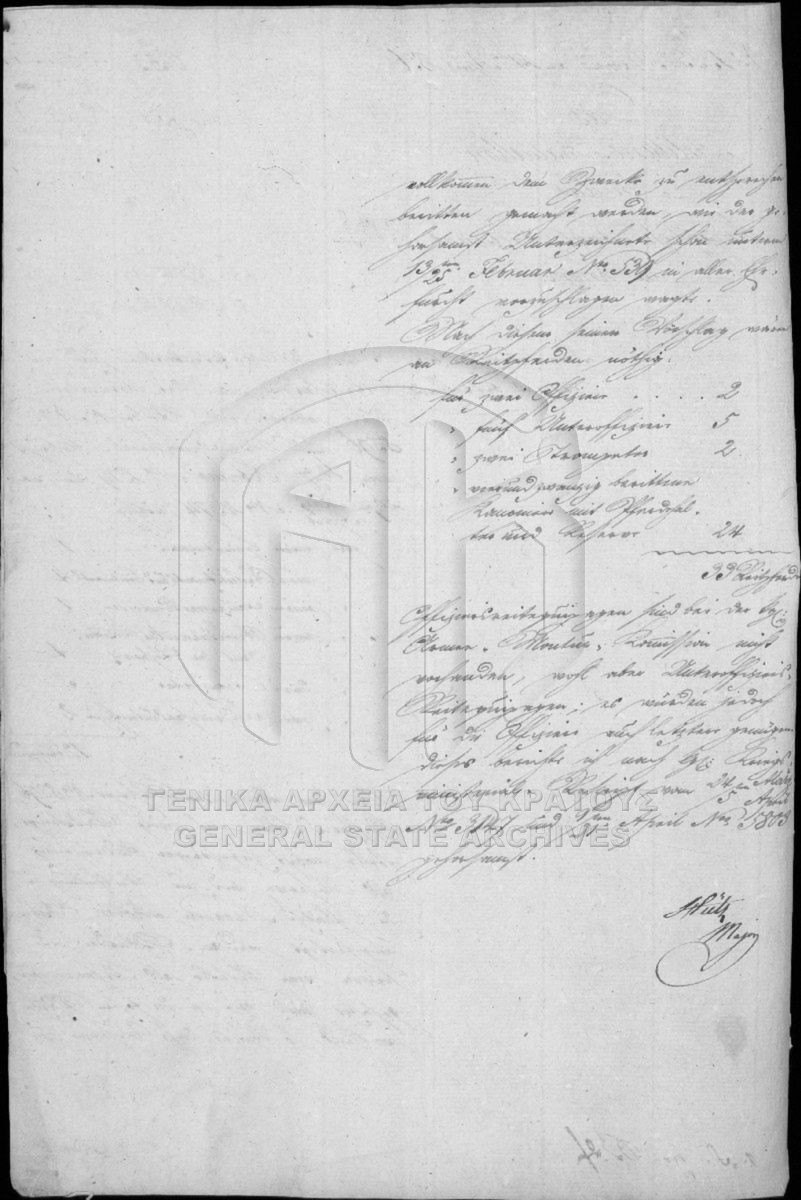 vollkommen dem Zwecke zu entsprechen
beritten gemacht werden, wie der ge-
horsamst Unterzeichnete schon unterm
13/25 ten Februar No. 539 in aller Ehr-
furcht vorzuschlagen wagte.
Nach diesem seinem Vorschlag wären
an Reitpferden nöthig:
für zwei Offiziere . . . . . 2
" fünf Unteroffiziere 5
" zwei Trompeter 2
" vierundzwanzig berittene
Kanoniere mit Pferdehal-
ter und Reserve 24
33 Reitpferde
Offiziersreitequipagen sind bei der kgl:
Armee-Montur-Kommission nicht
vorhanden, wohl aber Unteroffiziers-
Reitequipagen; es würden jedoch
für die Offiziere auch letztere genügen
dieses berichte ich nach kgl: Kriegs-
ministerial-Rescript vom 24 März/5 April
No. 3147 und April No. 3803
gehorsamst.
Major
ΓΕΝΙΚΑ ΑΡΧΕΙΑ ΤΟΥ ΚΡΑΤΟΥΣ
GENERAL STATE ARCHIVES